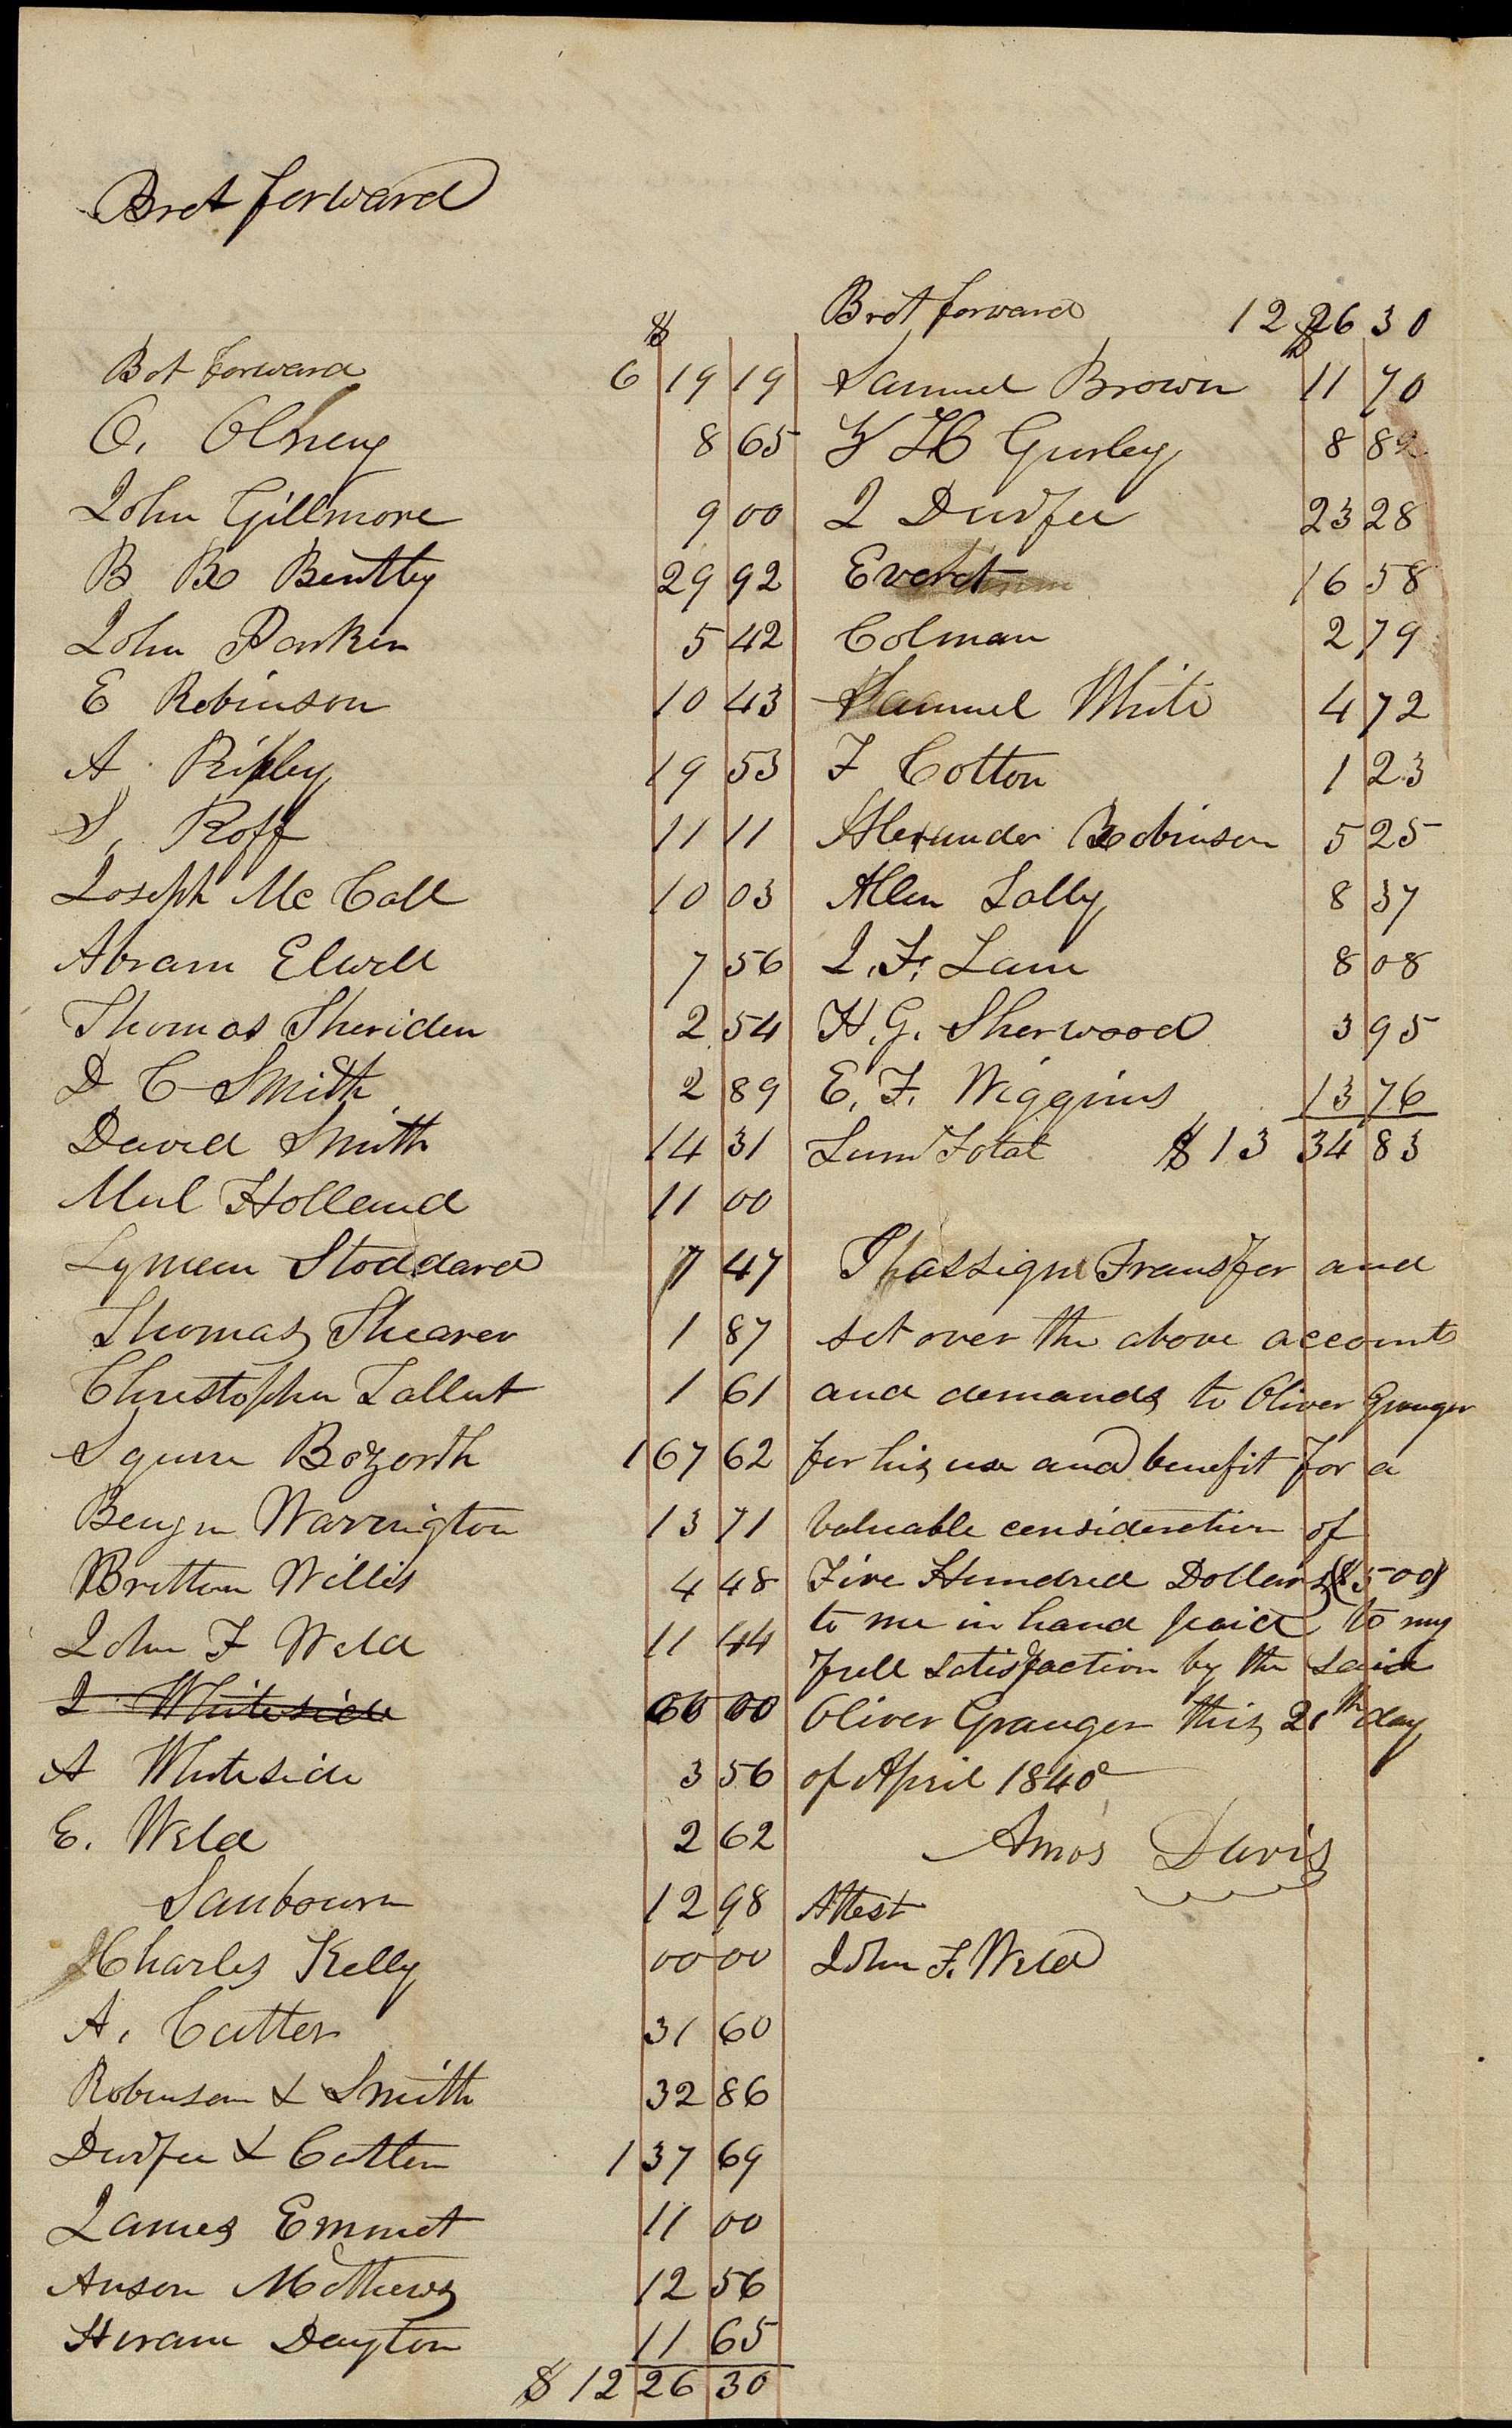 Brot forward
$
Bot forward 6 19 19
O. Olney 8 65
John Gillmore 9 00
B B Bentley 29 92
John Parker 5 42
E Robinson 10 43
A Ripley 19 53
S. Roff 11 11
Joseph Mc Call 10 03
Abram Elwell 7 56
Thomas Sheriden 2 54
D C Smith 2 89
David Smith 14 31
Holland 11 00
Lyman Stoddard 7 47
Thomas Shearer 1 87
Christopher 1 61
Squire Bozorth 1 67 62
Benjn Warrington 13 71
Britton Willis 4 48
John F Weld 11 44
J Whiteside 00 00
A Whiteside 3 56
E. Weld 2 62
Sanbourn 12 98
Charles Kelly 00 00
A. Cutler 31 60
Robinson & Smith 32 86
Durfee & Cutler 1 37 69
James Emmet 11 00
Anson Mathews 12 56
Hiram Dayton 11 65
$ 12 26 30
Brot forward 12 26 30
$
Samuel Brown 11 70
Gurley 8
J Durfee 23 28
Everet 16 58
Colman 2 79
Samuel White 4 72
F Cotton 1 23
Alexander Robinson 5 25
Allen Lally 8 37
J. F. Lane 8 08
H. G. Sherwood 3 95
E. F. Wiggins 13 76
Sum Total $ 13 34 83
I assign Transfer and
set over the above accounts
and demands to Oliver Granger
for his use and benefit for a
valuable consideration of
Five Hundred Dollars ($500)
to me in hand paid to my
full satisfaction by the said
Oliver Granger this 21th day
of April 1840
Amos Davis
Attest
John F. Weld